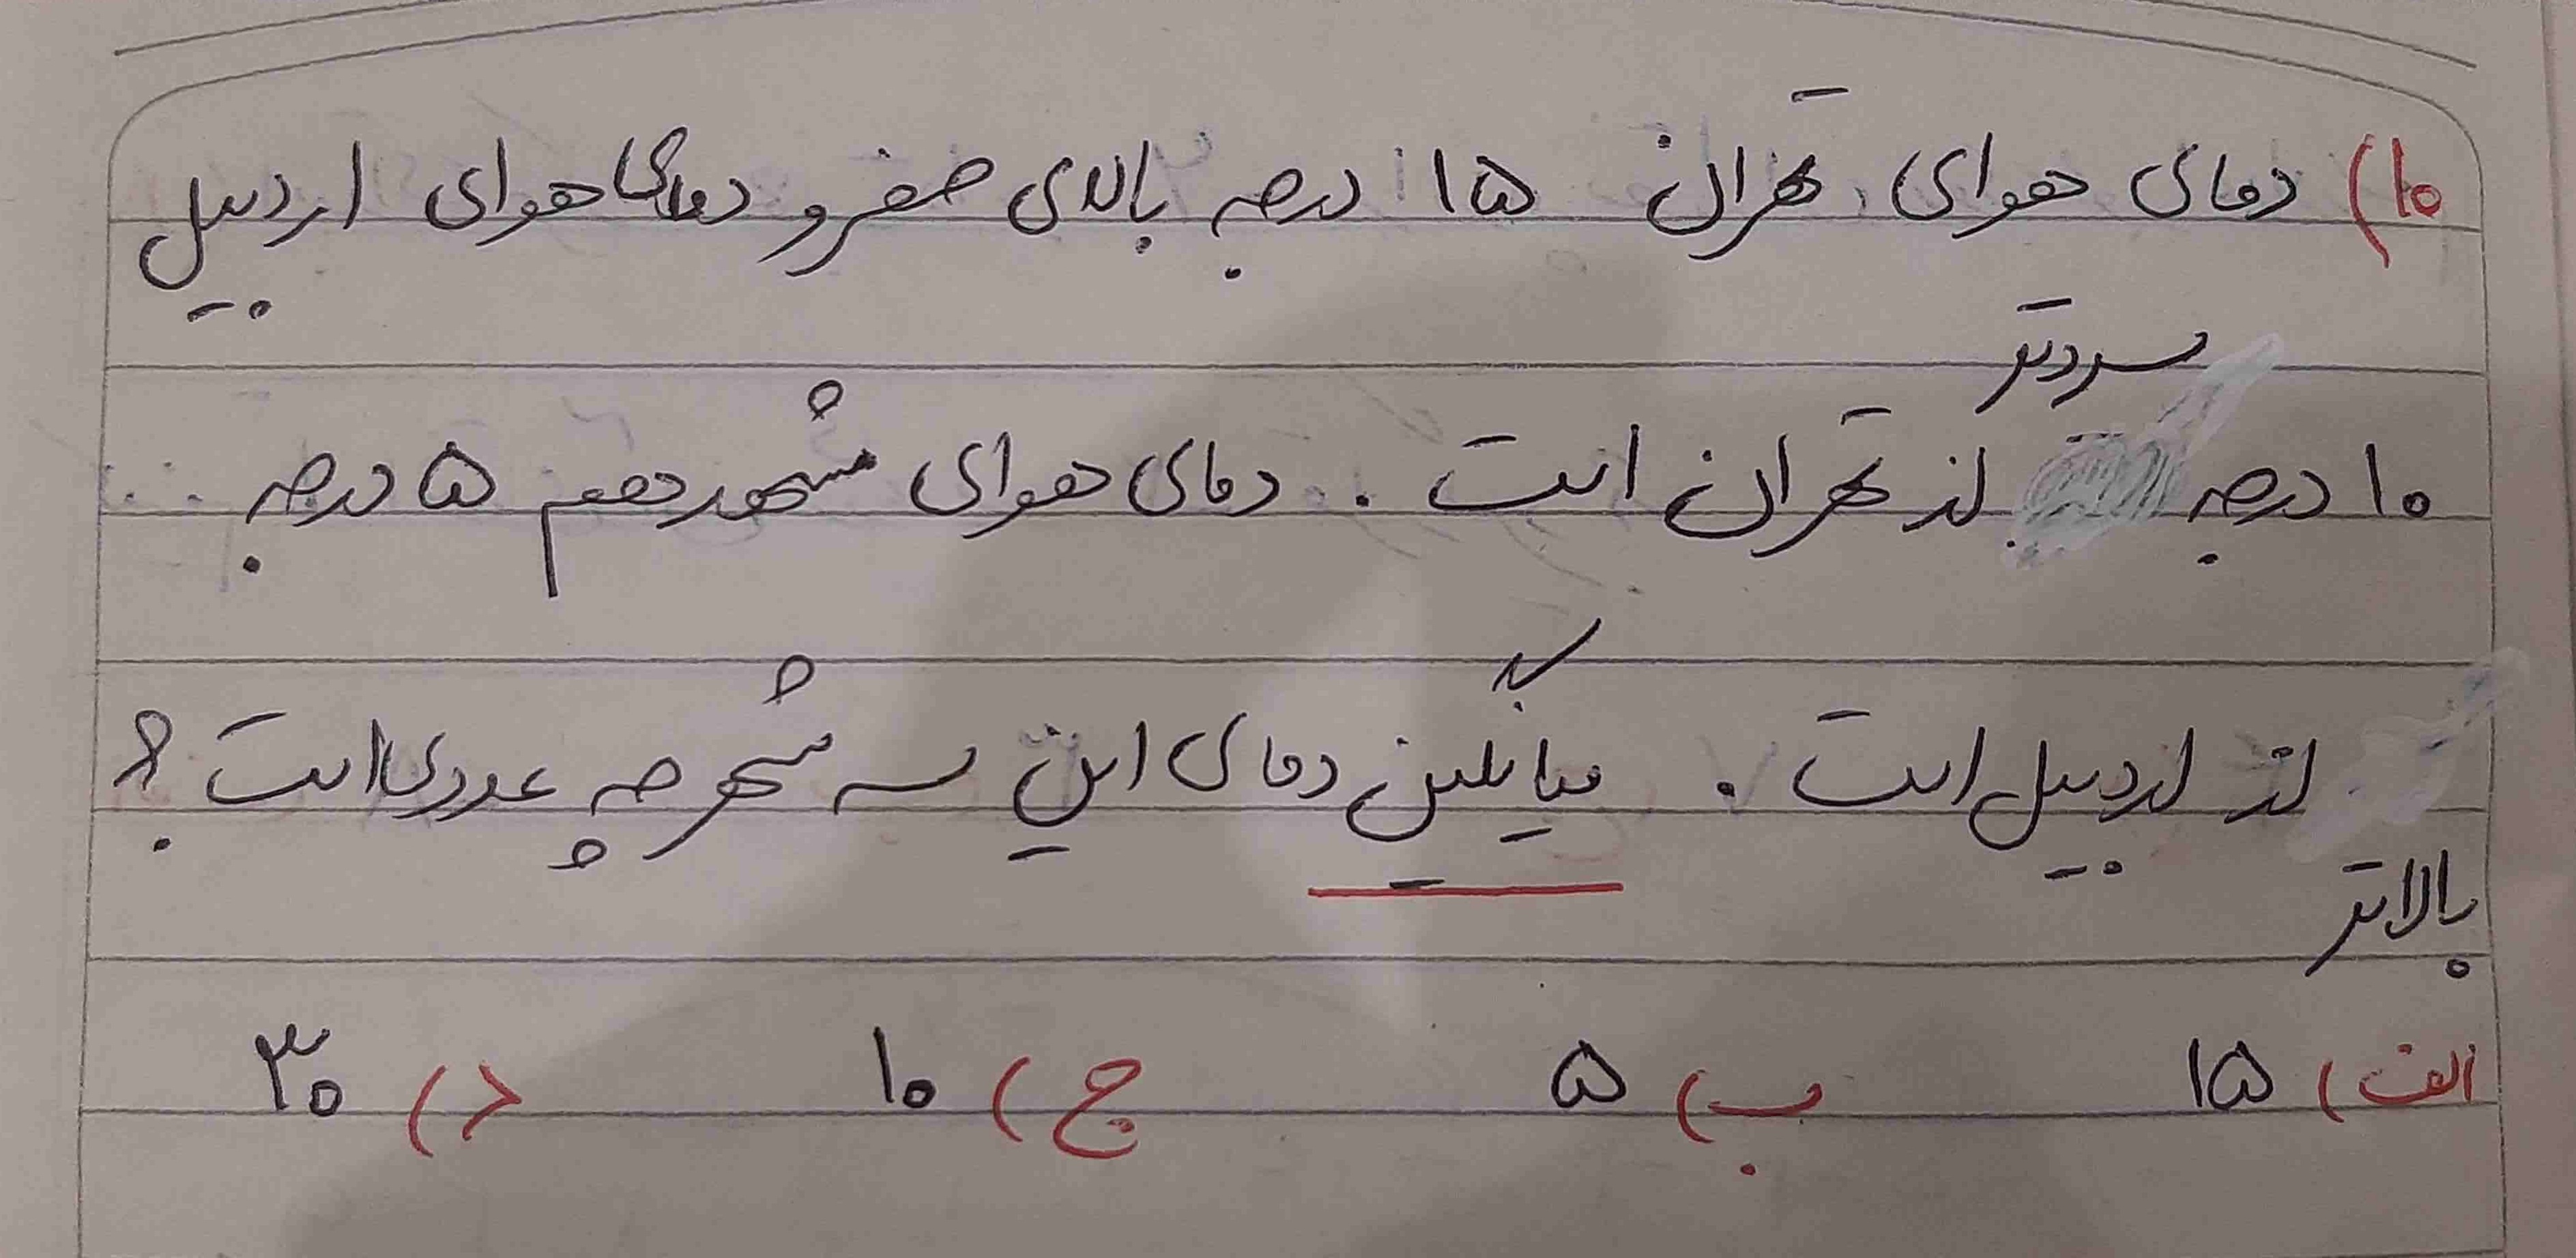 ۱۰) دمای هوای تهران ۱۵ درجه بالای صفر و دمای هوای اردبیل
سردتر
۱۰ درجه از تهران است . دمای هوای مشهد هم ۵ درجه ...
از اردبیل است . میانگین دمای این سه شهر چه عددی است ؟
بالاتر
الف) ۱۵ ب) ۵ ج) ۱۰ د) ۳۰